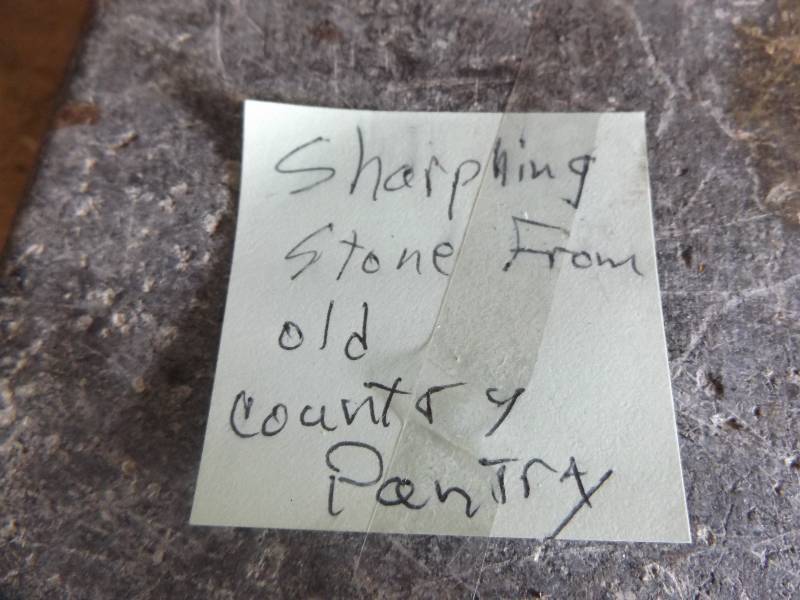 Sharphing
Stone From
old
country
Pantry